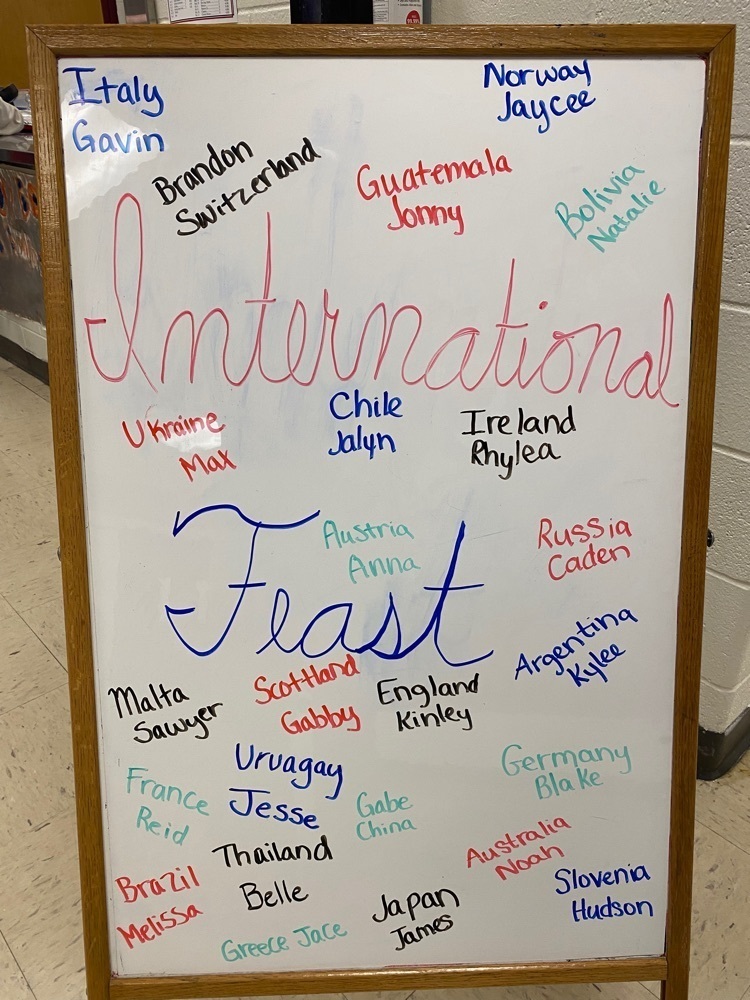 Italy
Gavin
Norway
Jaycee
Brandon
Switzerland
Guatemala
Jonny
Bolivia
Natalie
International
Ukraine
Max
Chile
Jalyn
Ireland
Rhylea
Feast
Austria
Anna
Russia
Caden
Argentina
Kylee
Malta
Sawyer
Scottland
Gabby
England
Kinley
Uruagay
Jesse
Germany
Blake
France
Reid
Gabe
China
Thailand
Belle
Australia
Noah
Brazil
Melissa
Japan
James
Slovenia
Hudson
Greece Jace